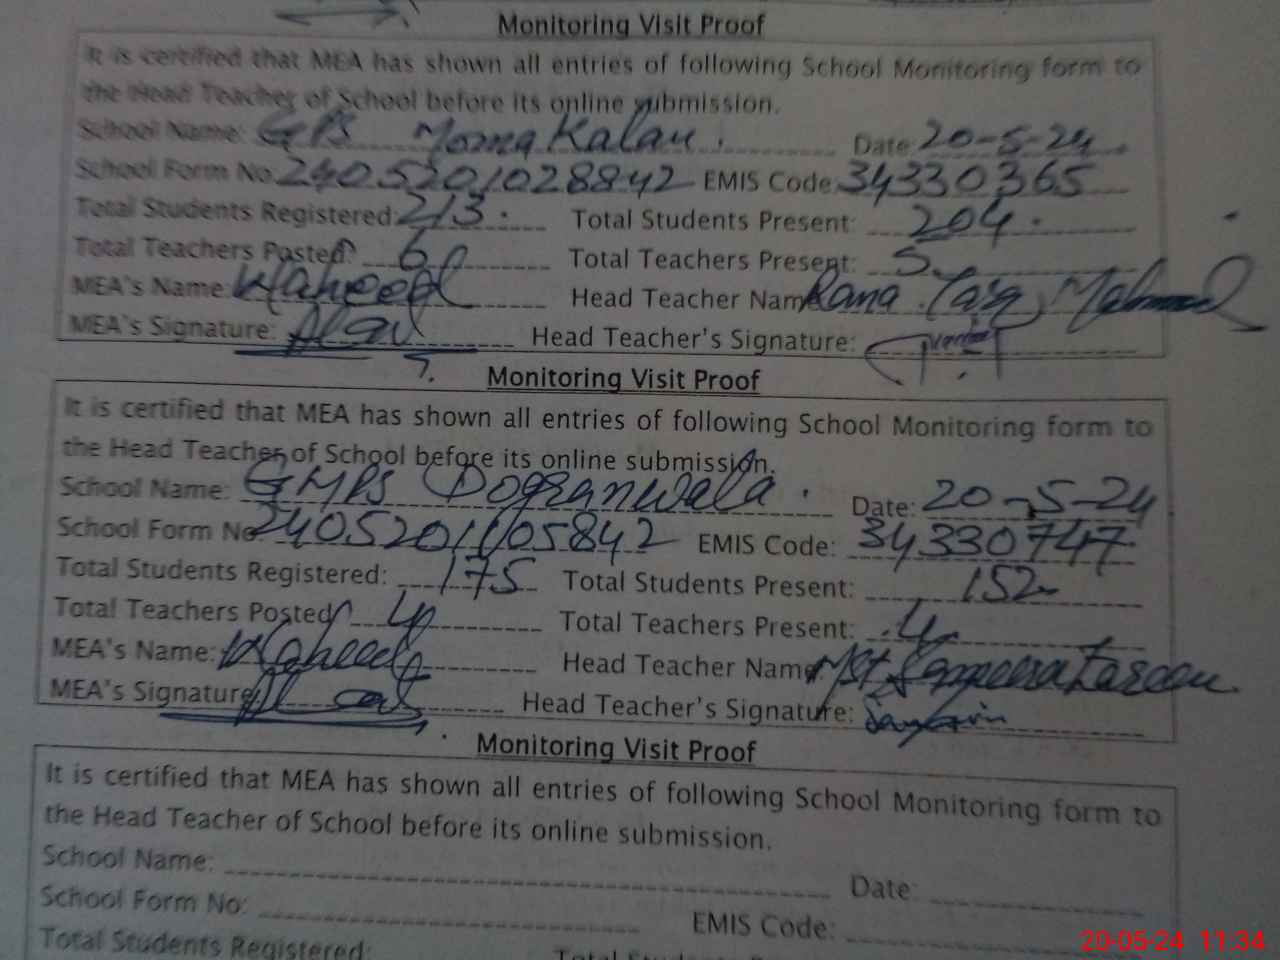 Monitoring Visit Proof
It is certified that MEA has shown all entries of following School Monitoring form to
the Head Teacher of School before its online submission.
School Name: GPS Moma Kalan. Date: 20-5-24.
School Form No: 2405201028842 EMIS Code: 34330365
Total Students Registered: 213. Total Students Present: 204.
Total Teachers Posted: 6 Total Teachers Present: 5
MEA's Name: Waheed Head Teacher Name: Rana Tariq Mahmood
MEA's Signature: Head Teacher's Signature:
Monitoring Visit Proof
It is certified that MEA has shown all entries of following School Monitoring form to
the Head Teacher of School before its online submission.
School Name: GMPS Dogranwala. Date: 20-5-24
School Form No: 2405201105842 EMIS Code: 34330747
Total Students Registered: 175 Total Students Present: 152
Total Teachers Posted: 4 Total Teachers Present: 4
MEA's Name: Waheed Head Teacher Name: Mst. Sameera
MEA's Signature: Head Teacher's Signature:
Monitoring Visit Proof
It is certified that MEA has shown all entries of following School Monitoring form to
the Head Teacher of School before its online submission.
School Name: Date:
School Form No: EMIS Code:
Total Students Registered:
20-05-24 11:34